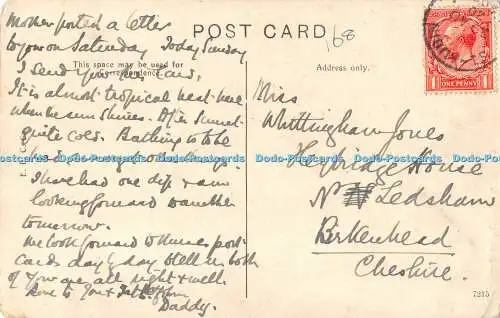 Mother posted a letter
to you on Saturday Today Sunday
I send you this card,
It is almost tropical heat here
when the sun shines. After sunset
quite cold. Bathing is to be
had
I have had one dip & am
looking forward to another
tomorrow.
We look forward to Nurses post
cards day by day to tell us both
of you are all right & well.
Love to You &
Daddy.
POST CARD
168
This space may be used for
correspondence.
Address only.
ONE PENNY
Miss
Whittingham Jones
Heybridge House
Nr Ledsham
Birkenhead
Cheshire.
7215
Dodo-Postcards Dodo-Postcards Dodo-Postcards Dodo-Postcards